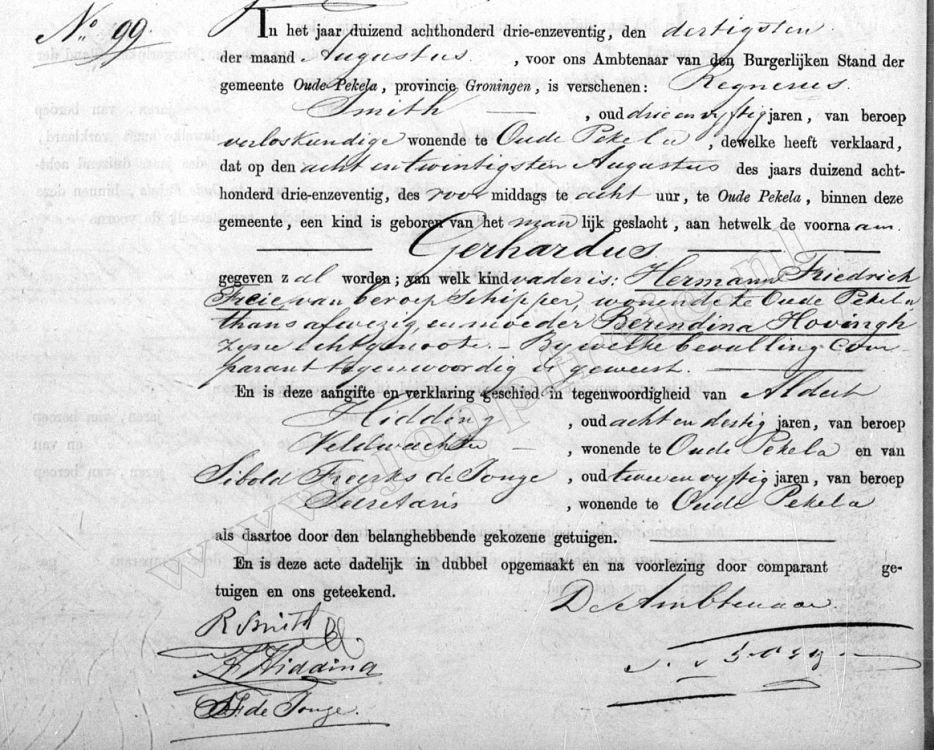 No. 99.
In het jaar duizend achthonderd drie-enzeventig, den dertigsten
der maand Augustus , voor ons Ambtenaar van den Burgerlijken Stand der
gemeente Oude Pekela, provincie Groningen, is verschenen: Regnerus
Smith , oud drie en vyftig jaren, van beroep
verloskundige wonende te Oude Pekela , dewelke heeft verklaard,
dat op den acht en twintigsten Augustus des jaars duizend acht-
honderd drie-enzeventig, des voor middags te acht uur, te Oude Pekela, binnen deze
gemeente, een kind is geboren van het man lijk geslacht, aan hetwelk de voorna am
Gerhardus
gegeven z al worden; van welk kind vader is: Hermann Friedrich
Freie van beroep Schipper, wonende te Oude Pekela
thans afwezig, en moeder Berendina Hovingh
zyne echtgenoote. – By welke bevalling com-
parant tegenwoordig is geweest.
En is deze aangifte en verklaring geschied in tegenwoordigheid van Aldert
Hidding , oud acht en dertig jaren, van beroep
Veldwachter , wonende te Oude Pekela en van
Sibold Freerks de Jonge , oud twee en vyftig jaren, van beroep
Secretaris , wonende te Oude Pekela
als daartoe door den belanghebbende gekozene getuigen.
En is deze acte dadelijk in dubbel opgemaakt en na voorlezing door comparant ge-
tuigen en ons geteekend.
De Ambtenaar.
R Smith
A Hidding
SF de Jonge.